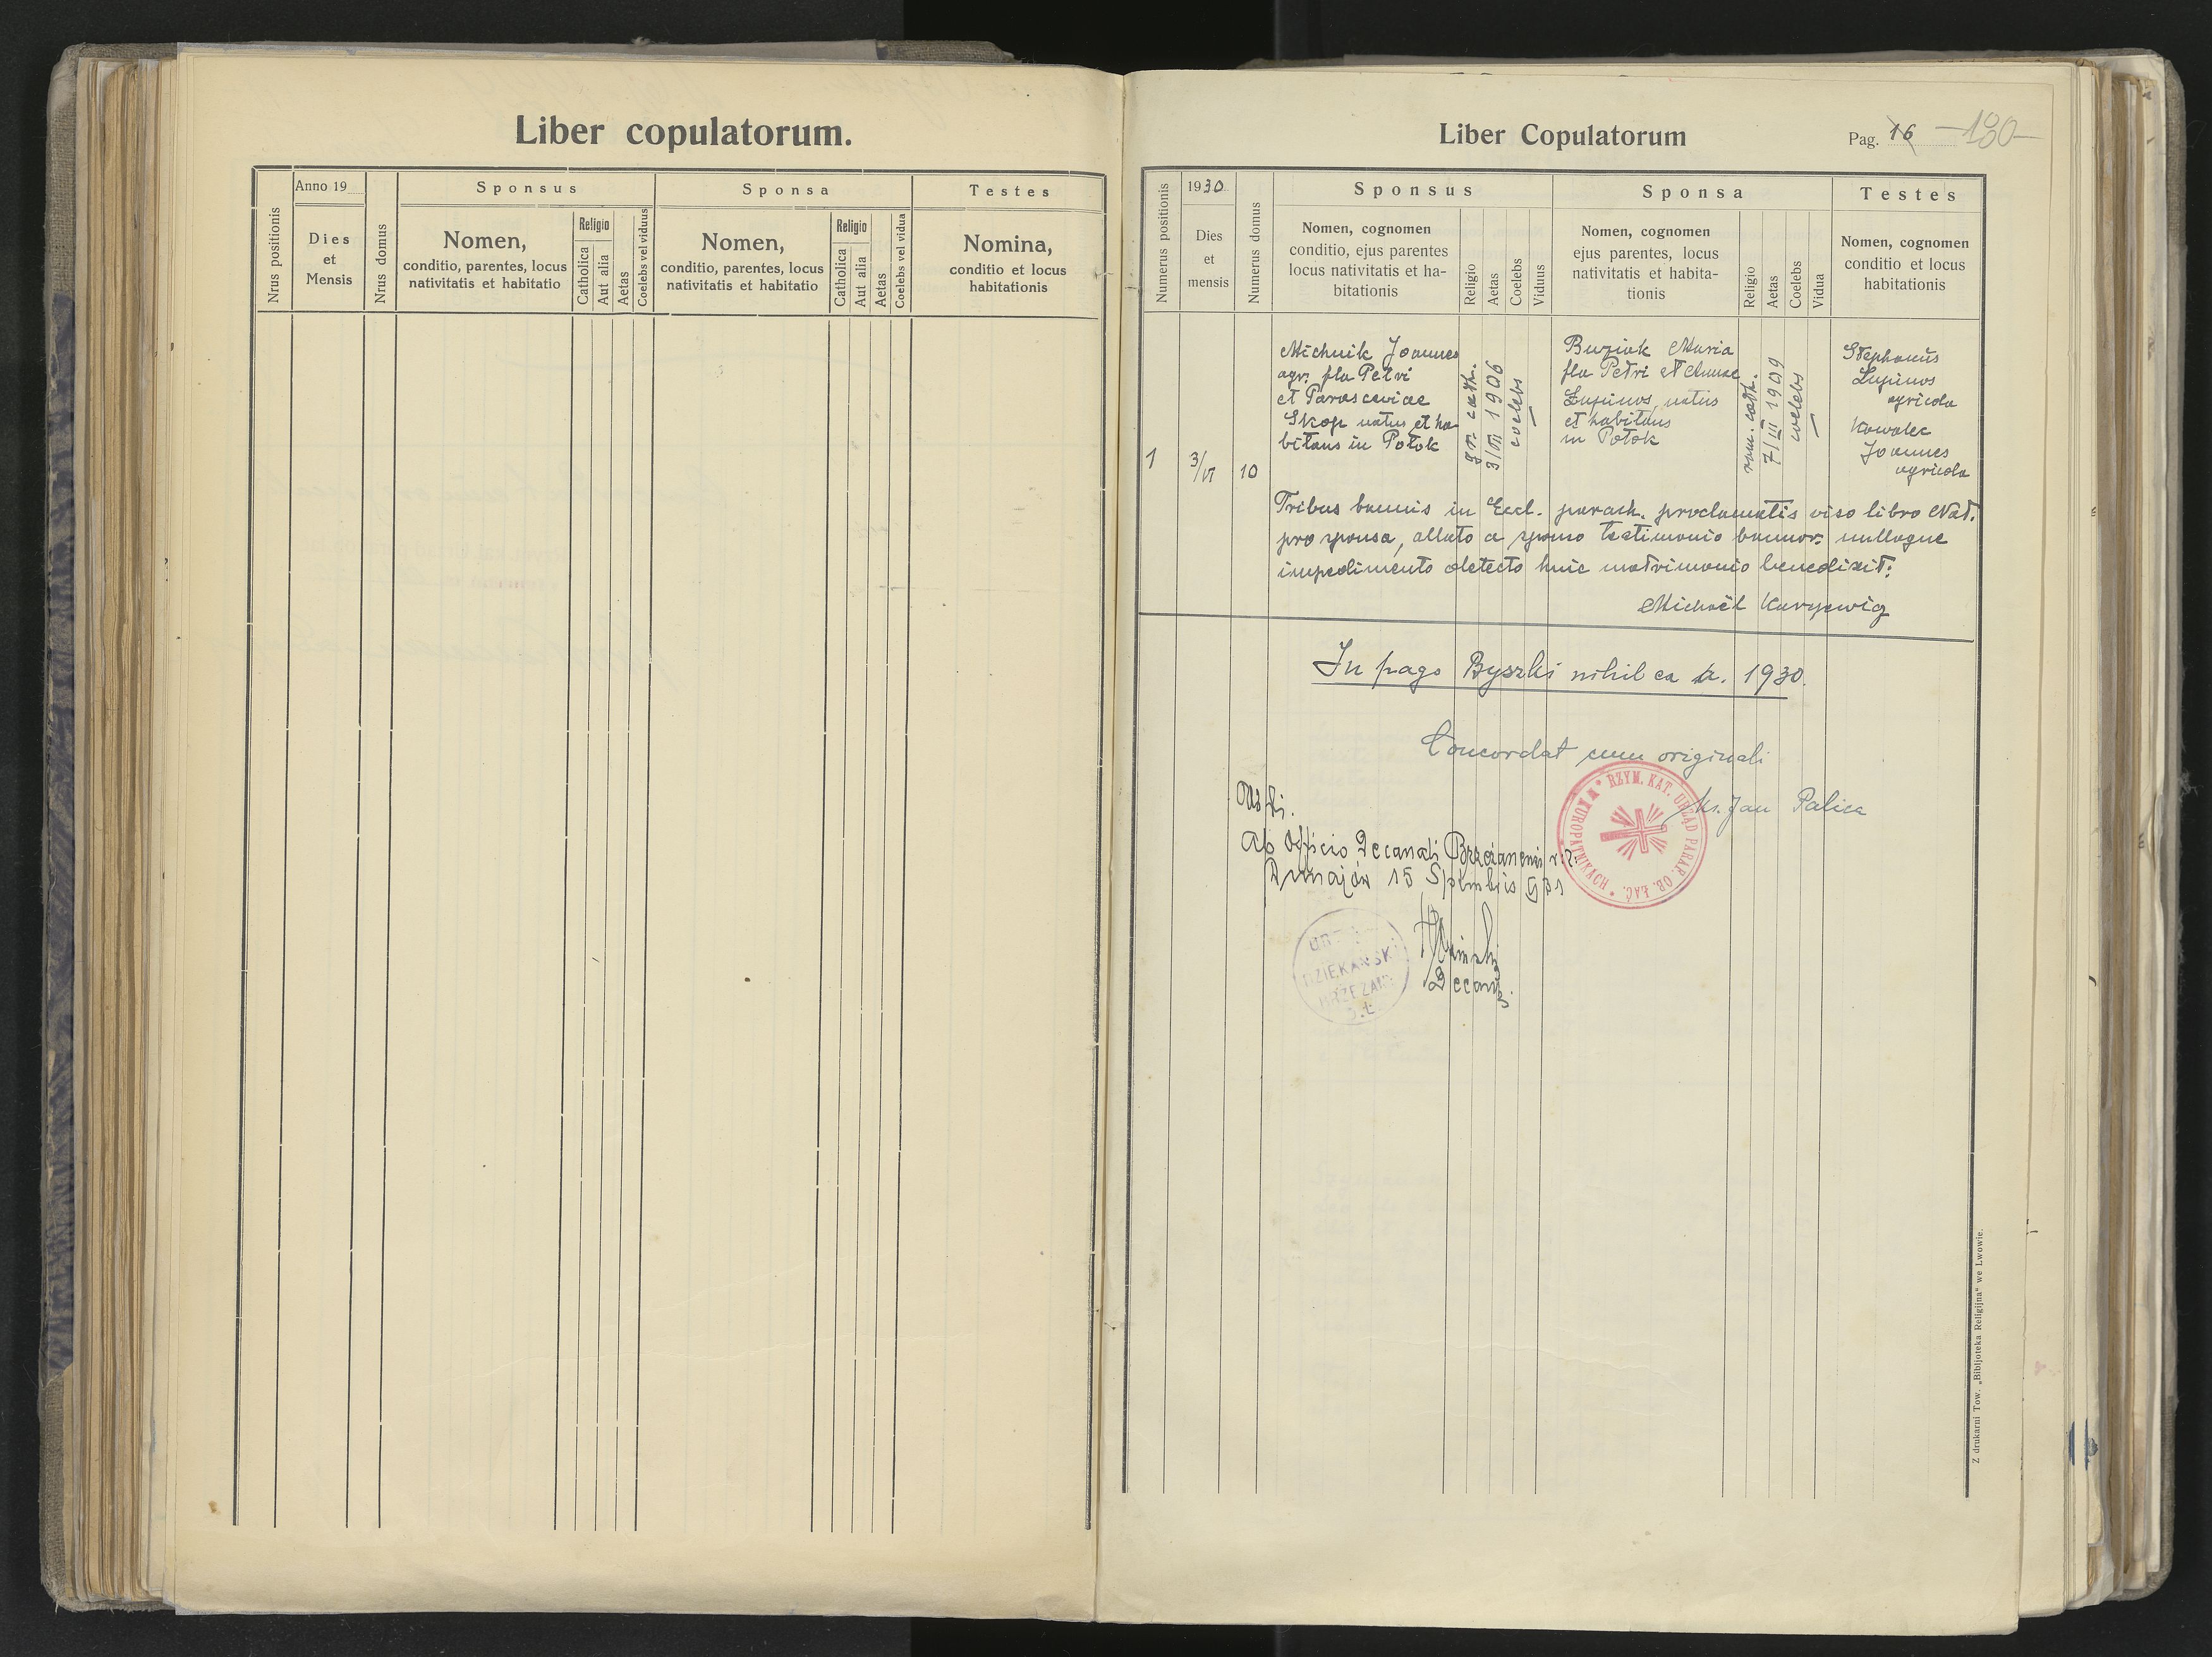 Liber copulatorum.
Nrus positionis
Anno 19
Dies
et
Mensis
Nrus domus
Sponsus
Nomen,
conditio, parentes, locus
nativitatis et habitatio
Religio
Catholica
Aut alia
Aetas
Coelebs vel viduus
Sponsa
Nomen,
conditio, parentes, locus
nativitatis et habitatio
Religio
Catholica
Aut alia
Aetas
Coelebs vel vidua
Testes
Nomina,
conditio et locus
habitationis
Liber Copulatorum
Pag. 16 -180-
Numerus positionis
1930
Dies
et
mensis
Numerus domus
Sponsus
Nomen, cognomen
conditio, ejus parentes
locus nativitatis et ha-
bitationis
Religio
Aetas
Coelebs
Viduus
Sponsa
Nomen, cognomen
ejus parentes, locus
nativitatis et habita-
tionis
Religio
Aetas
Coelebs
Vidua
Testes
Nomen, cognomen
conditio et locus
habitationis
1
3/VI
10
Michnik Joannes
agr. fls Petri
et Parasceviae
Skop natus et ha-
bitans in Potok
gr. cath.
3/VII 1906
coelebs
Buziak Maria
fla Petri et Annae
Łupinos natus
et habitans
in Potok
rom. cath.
7/III 1909
coelebs
Stephanus
Łupinos
agricola
Kowalec
Joannes
agricola
Tribus bannis in Eccl. paroch. proclamatis viso libro Nat.
pro sponsa, allato a sponso testimonio bannor. nulloque
impedimento detecto huic matrimonio benedixit:
Michaël
In pago Byszki nihil ea a. 1930.
Concordat cum originali
ks. Jan Palica
RZYM. KAT. URZĄD PARAF. OB. ŁAĆ.
Ab Officio Decanali Brzezanensi r. l.
Dunajów 15 Septembris 931
Decanus
DZIEKAŃSKI
BRZEŻANY
Z drukarni Tow. „Bibljoteka Religijna" we Lwowie.